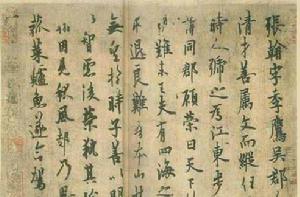 張翰字季鷹吳郡
清才善屬文而縱任
時人號之為江東步
謂同郡顧榮曰天下
難未已夫有四海之
退良難吾本山林
無望於時子善以明
智慮後榮執其
因見秋風起乃
菰菜鱸魚遂命駕